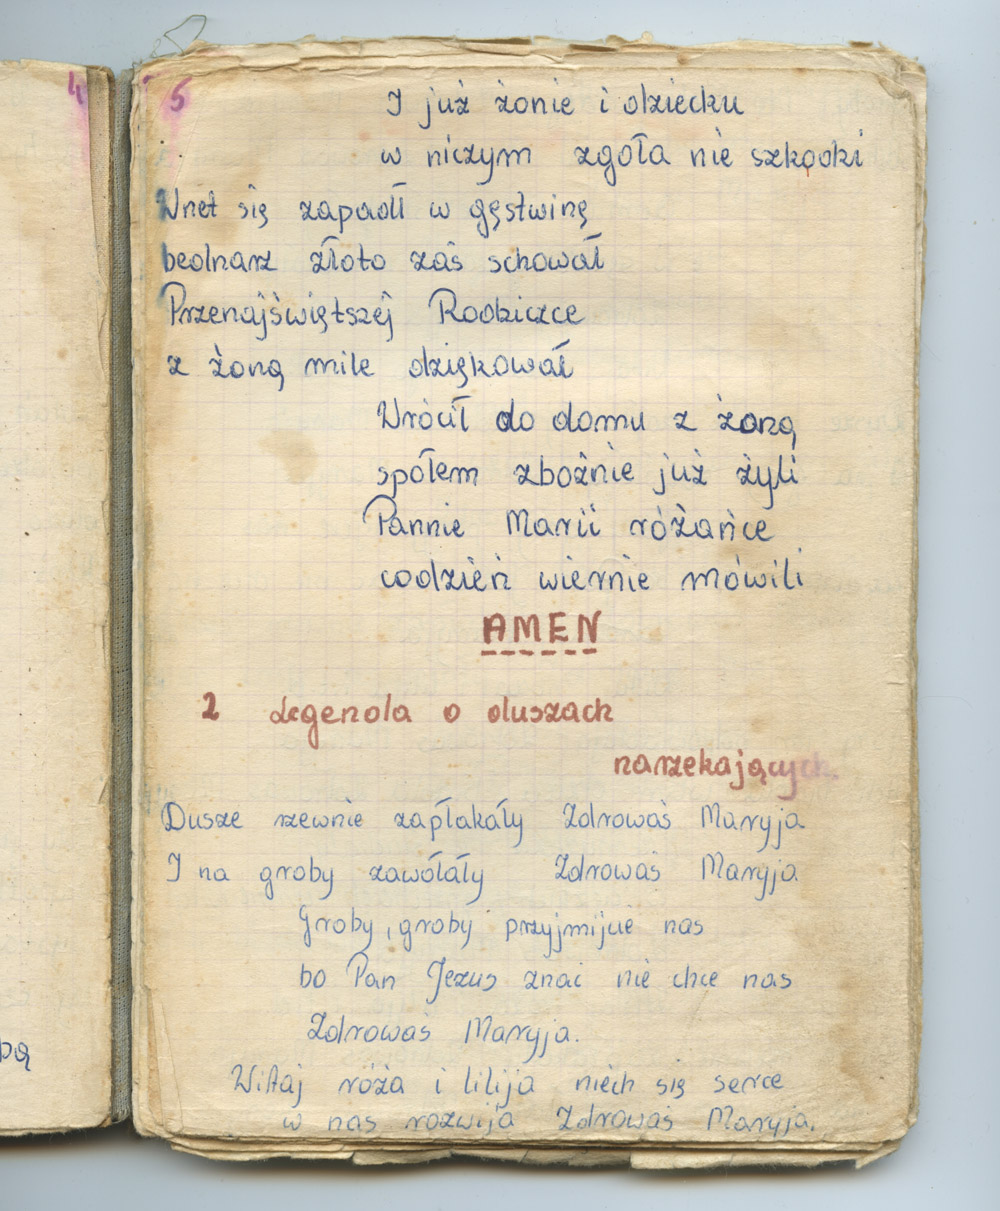 4
5
I już żonie i dziecku
w niczym zgoła nie szkodzi
Wnet się zapadł w gęstwinę
bednarz złoto zaś schował
Przenajświętszej Rodziczce
z żoną mile dziękował
Wrócił do domu z żoną
społem zbożnie już żyli
Pannie Marii różańce
codzień wiernie mówili
AMEN
2 Legenda o duszach
narzekających.
Dusze rzewnie zapłakały Zdrowaś Maryja
I na groby zawołały Zdrowaś Maryja
Groby, groby przyjmijcie nas
bo Pan Jezus znać nie chce nas
Zdrowaś Maryja.
Witaj róża i lilija niech się serce
w nas rozwija Zdrowaś Maryja.